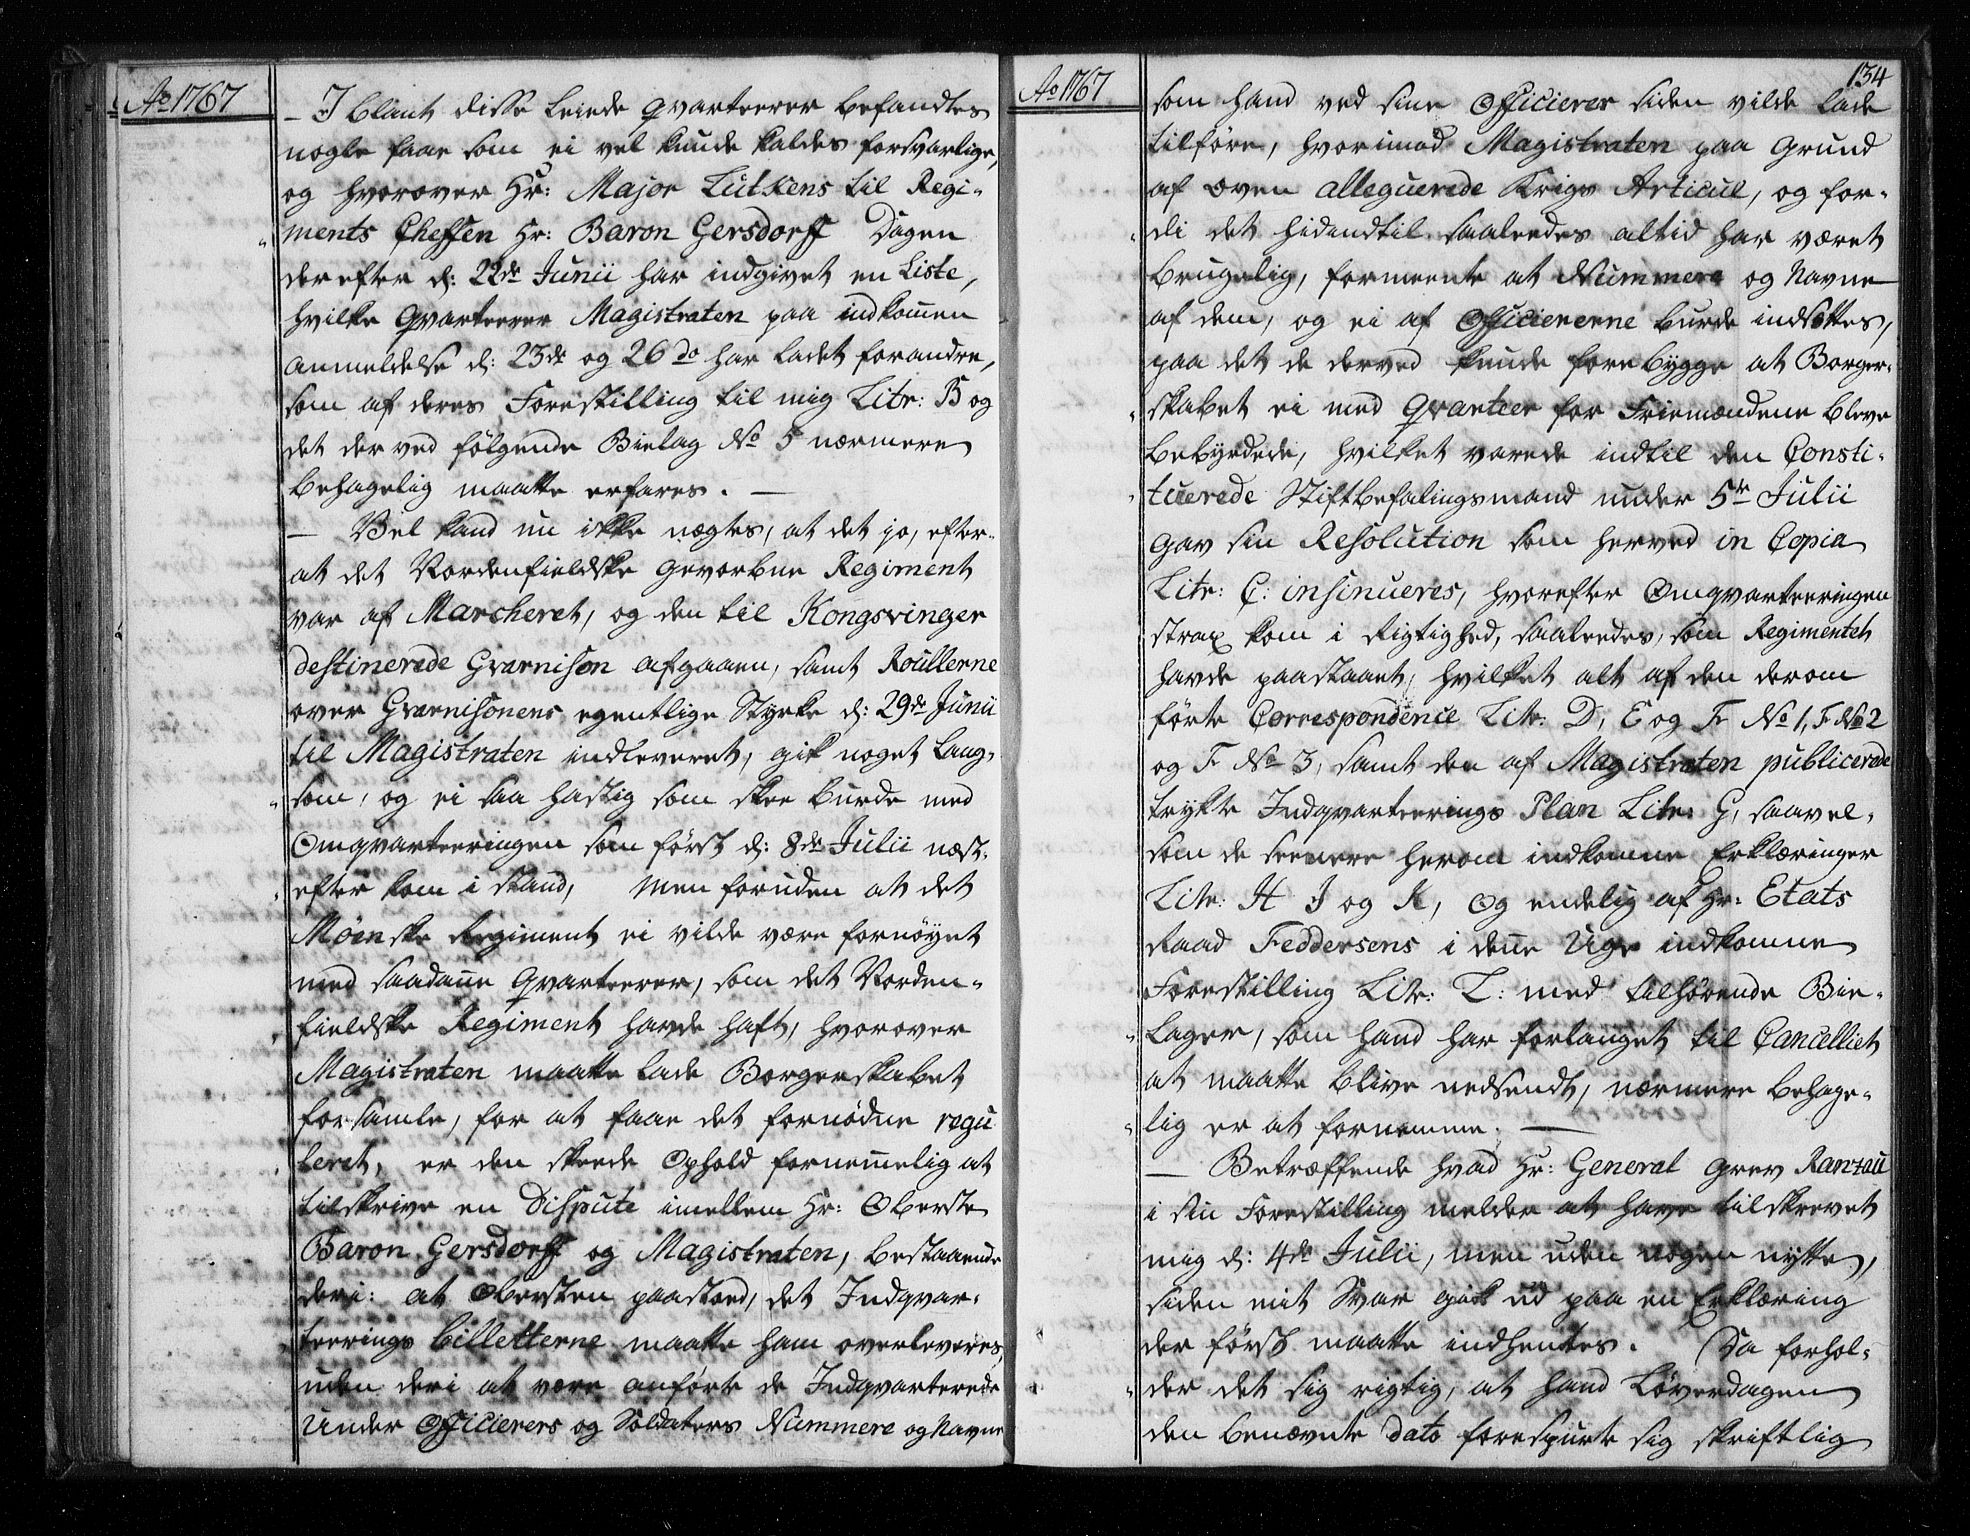 Ao 1767
– I blant disse leiede Qvarteerer befandtes
nogle faae som ei vel kunde kaldes forsvarlige,
og hvorover Hr: Major Lütkens til Regi-
ments Cheffen Hr: Baron Gersdorff Dagen
derefter d: 22de Junii har indgivet en Liste,
hvilke Qvarteerer Magistraten paa indkommen
anmeldelse d: 23de og 26do har ladet forandre,
som af deres Forestilling til mig Litr: B og
det derved følgende Bielag No 5 nærmere
behagelig maatte erfares. —
— Vel kand nu ikke nægtes, at det jo, efter-
at det Nordenfieldske gevorbne Regiment
var af Marcheret, og den til Kongsvinger
destinerede Gvarnison afgaaen, samt Roullerne
over Gvarnisonens egentlige Styrke d: 29de Junii
til Magistraten indleveret, gik noget lang-
som, og ei saa hastig som skee burde med
Omqvarteeringen som først d: 8de Julii næst-
efter kom i stand, Men foruden at det
Møenske Regiment ei vilde være fornøyet
med saadanne Qvarteerer, som det Norden-
fieldske Regiment havde haft, hvorover
Magistraten maatte lade Borgerskabet
forsamle, for at faae det fornødne regu
leret, er den skeede Ophold fornemmelig at
tilskrive en Dispute imellem Hr: Oberste
Baron Gersdorff og Magistraten, bestaaende
deri: at Obersten paastoed, det Indqvar-
teerings billetterne maatte ham overleveres,
uden deri at være anførte de Indqvarterede
Under Officierers og Soldaters Nummere og Navne
Ao 1767
134
som hand ved sine Officierer siden vilde lade
tilføre, hvorimod Magistraten paa Grund
af oven alleguerede Krigs Articul, og for-
di det hidindtil saaledes altid har været
brugelig, formeente at Nummere og Navne
af dem, og ei af Officiererne burde indsættes,
paa det de derved kunde forebygge at Borger-
skabet ei med Qvarteer for Friemændene bleve
bebyrdede, hvilket varede indtil den Consti-
tuerede Stiftbefalingsmand under 5te Julii
gav sin Resolution som herved in Copia
Litr: C: insinueres, hvorefter Omqvarteeringen
strax kom i Rigtighed, saaledes, som Regimentet
havde paastaaet, hvilket alt af den derom
førte Correspondence Litr: D, E og F No 1, F No 2
og F No 3, samt den af Magistraten publicerede
trykte Indqvarteerings Plan Litr: G, saavel-
som de seenere herom indkomne Erklæringer
Litr: H I og K, Og endelig af Hr: Etats
Raad Feddersens i denne Uge indkomne
Forestilling Litr: L: med tilhørende Bie-
lager, som hand har forlanget til Cancelliet
at maatte blive nedsendt, nærmere behage-
lig er at fornemme. —
— Betræffende hvad Hr: General Grev Ranzau
i sin Forestilling melder at have tilskrevet
mig d: 4de Julii, men uden nogen nytte,
siden mit Svar gik ud paa en Erklæring
der først maatte indhentes. Da forhol-
der det sig rigtig, at hand Løverdagen
den benævnte dato forespurte sig skriftlig